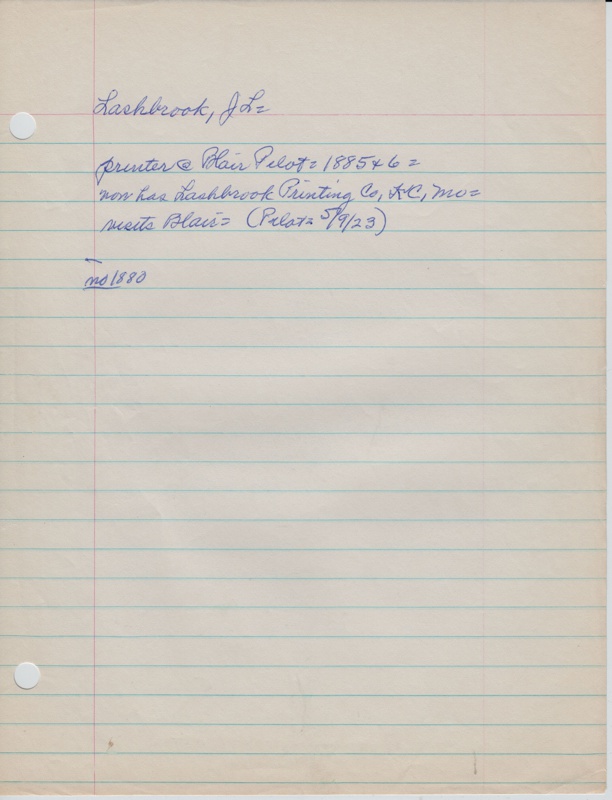 Lashbrook, J L=
printer @ Blair Pilot= 1885+6=
now has Lashbrook Printing Co, KC, Mo=
visits Blair= (Pilot= 5/9/23)
no 1880